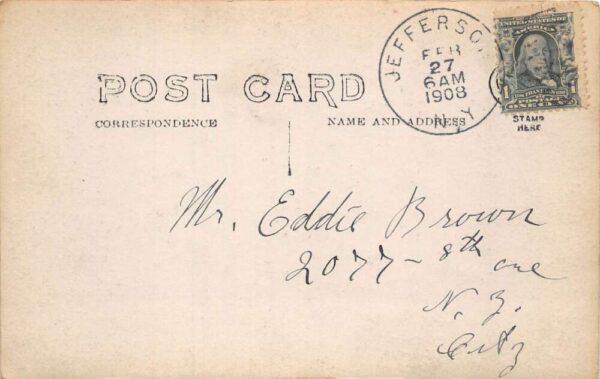 JEFFERSO
FEB
27
6AM
1908
N.Y.
UNITED STATES OF
AMERICA
1 1
POST CARD
CORRESPONDENCE
NAME AND ADDRESS
STAMP
HERE
Mr. Eddie Brown
2077 - 8th ave
N. Y.
City